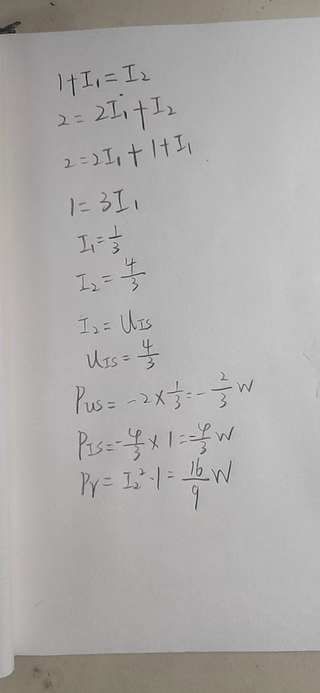 1+I₁=I₂
2=2I₁+I₂
2=2I₁+1+I₁
1=3I₁
I₁=1/3
I₂=4/3
I₂=U_IS
U_IS=4/3
P_US=-2×1/3=-2/3W
P_IS=-4/3×1=-4/3W
P_r=I₂²·1=16/9W